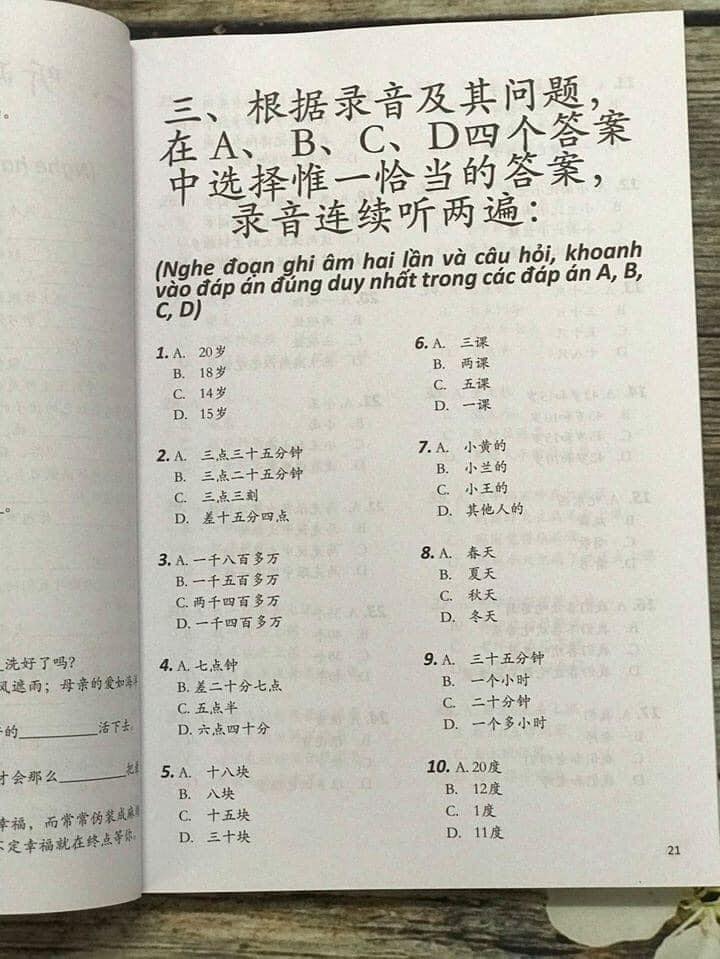 三、根据录音及其问题，
在 A、B、C、D四个答案
中选择惟一恰当的答案，
录音连续听两遍：
(Nghe đoạn ghi âm hai lần và câu hỏi, khoanh
vào đáp án đúng duy nhất trong các đáp án A, B,
C, D)
1. A. 20岁
B. 18岁
C. 14岁
D. 15岁
2. A. 三点三十五分钟
B. 三点二十五分钟
C. 三点三刻
D. 差十五分四点
3. A. 一千八百多万
B. 一千五百多万
C. 两千四百多万
D. 一千四百多万
4. A. 七点钟
B. 差二十分七点
C. 五点半
D. 六点四十分
5. A. 十八块
B. 八块
C. 十五块
D. 三十块
6. A. 三课
B. 两课
C. 五课
D. 一课
7. A. 小黄的
B. 小兰的
C. 小王的
D. 其他人的
8. A. 春天
B. 夏天
C. 秋天
D. 冬天
9. A. 三十五分钟
B. 一个小时
C. 二十分钟
D. 一个多小时
10. A. 20度
B. 12度
C. 1度
D. 11度
21
洗好了吗？
风遮雨；母亲的爱如海
的__________活下去
才会那么__________把
幸福，而常常伪装成麻
不定幸福就在终点等你